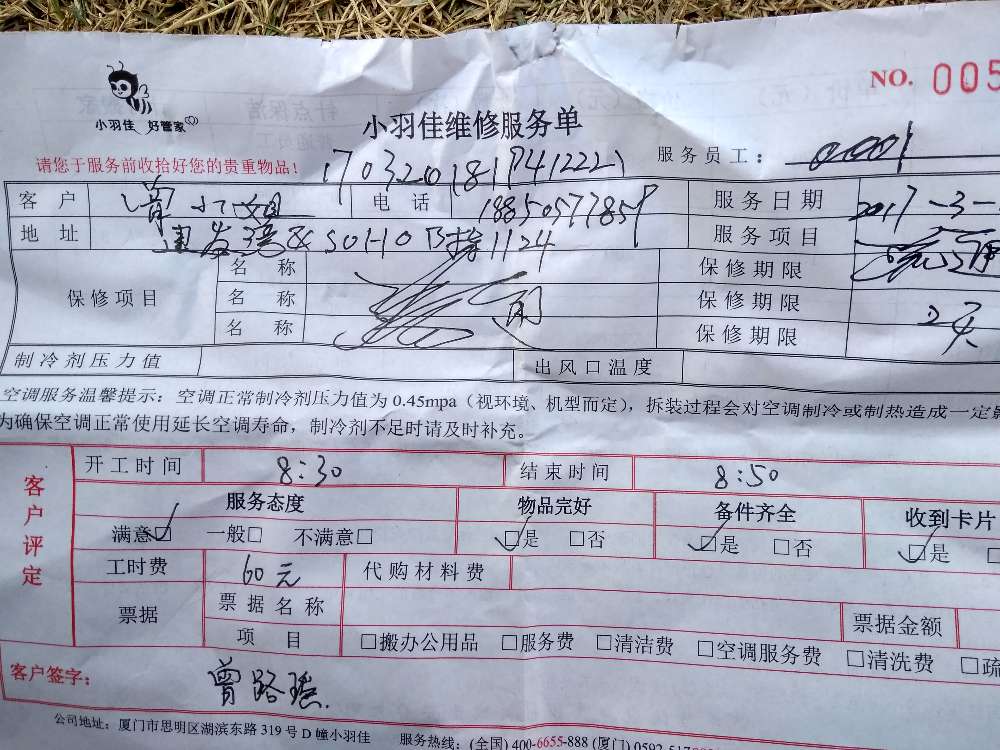 NO. 005
小羽佳 好管家
小羽佳维修服务单
请您于服务前收拾好您的贵重物品！
服务员工： 0001
客户 曾小姐 电话 18850577859 服务日期 2017-3-
地址 SOHO B栋1124 服务项目
保修项目 名称 保修期限
名称 保修期限 2天
名称 保修期限
制冷剂压力值 出风口温度
空调服务温馨提示：空调正常制冷剂压力值为 0.45mpa（视环境、机型而定），拆装过程会对空调制冷或制热造成一定影
为确保空调正常使用延长空调寿命，制冷剂不足时请及时补充。
客户评定
开工时间 8:30 结束时间 8:50
服务态度 物品完好 备件齐全 收到卡片
满意☑ 一般□ 不满意□ ☑是 □否 ☑是 □否 ☑是 □
工时费 60元 代购材料费
票据 票据名称 票据金额
项目 □搬办公用品 □服务费 □清洁费 □空调服务费 □清洗费 □疏
客户签字： 曾路瑶
公司地址：厦门市思明区湖滨东路 319 号 D 幢小羽佳 服务热线：(全国) 400-6655-888 (厦门) 0592-517